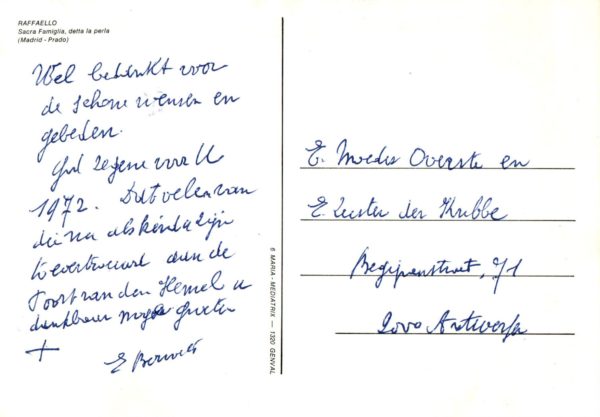 RAFFAELLO
Sacra Famiglia, detta la perla
(Madrid - Prado)
Wel bedankt voor
de schone wensen en
gebeden.
God zegene voor U
1972. Dat velen van
die na als kind zijn
toevertrouwd aan de
Poort van den Hemel u
dankbaar mogen groeten
+
E
6 MARIA - MEDIATRIX — 1320 GENVAL
E. Moeder Overste en
E. Zuster der Kribbe
Begijnenstraat, 71
2000 Antwerpen